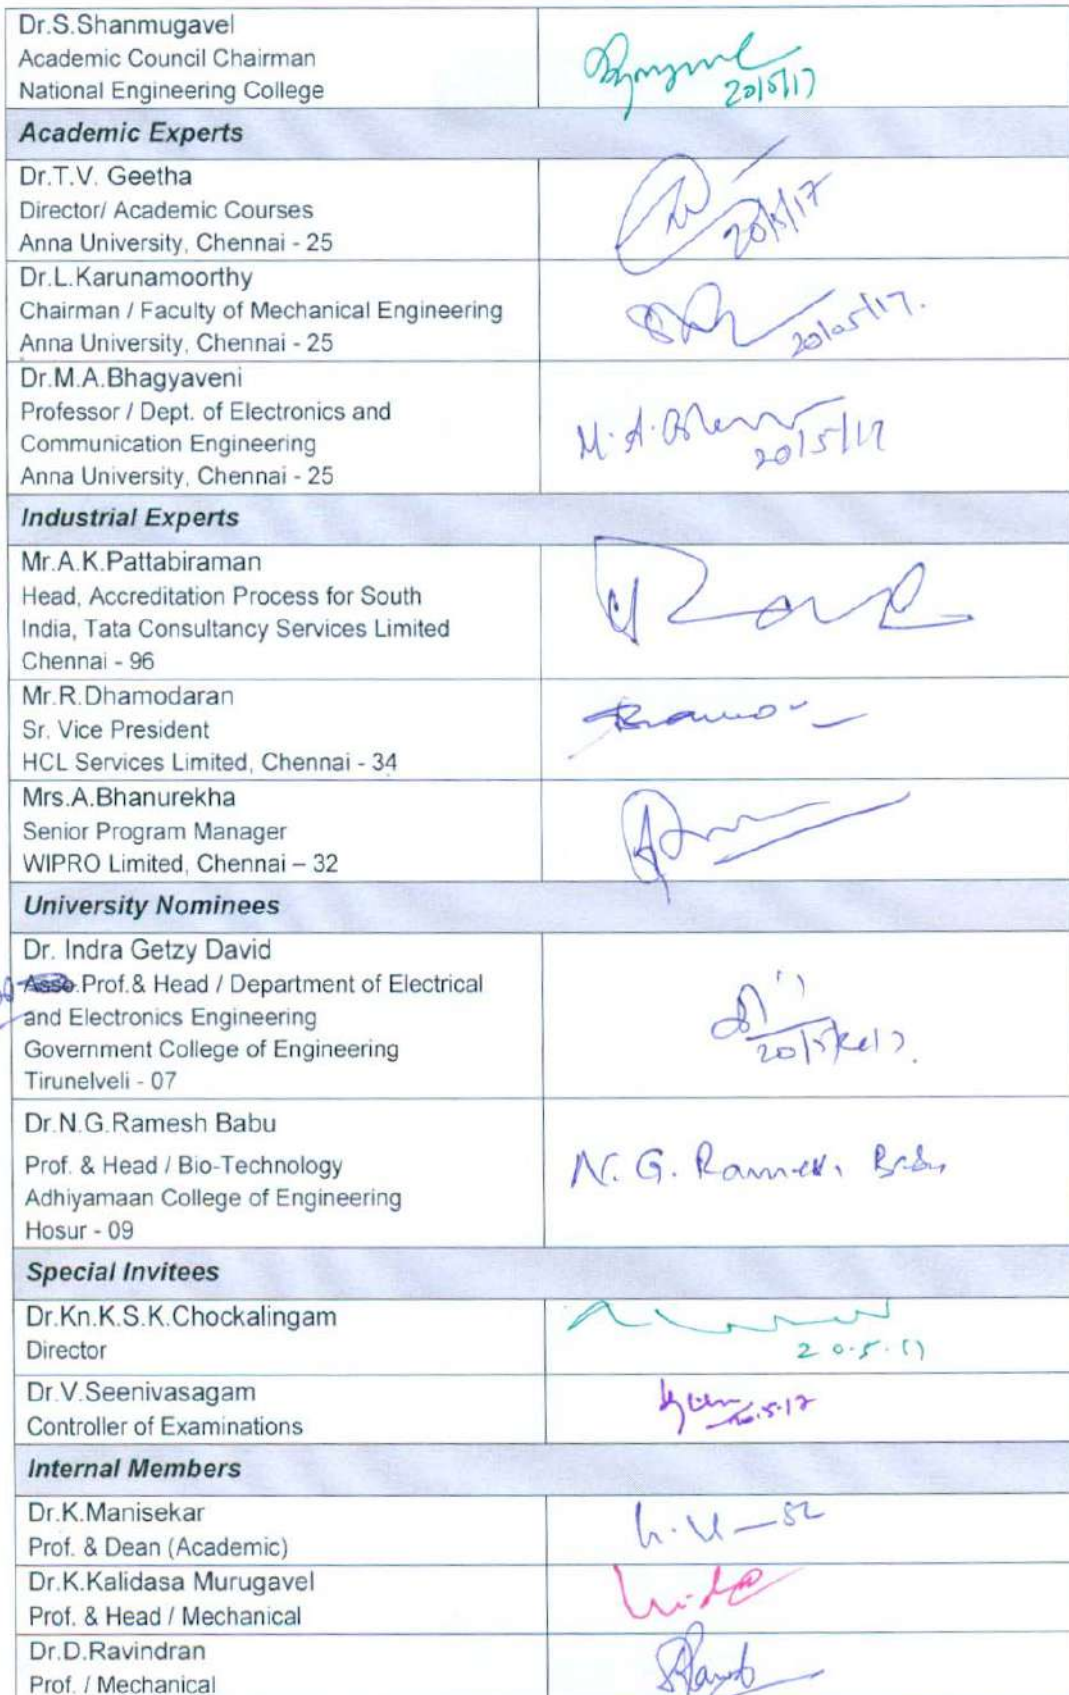 Dr.S.Shanmugavel
Academic Council Chairman
National Engineering College
20/5/17
Academic Experts
Dr.T.V. Geetha
Director/ Academic Courses
Anna University, Chennai - 25
20/5/17
Dr.L.Karunamoorthy
Chairman / Faculty of Mechanical Engineering
Anna University, Chennai - 25
20/05/17.
Dr.M.A.Bhagyaveni
Professor / Dept. of Electronics and
Communication Engineering
Anna University, Chennai - 25
M.A.
20/5/17
Industrial Experts
Mr.A.K.Pattabiraman
Head, Accreditation Process for South
India, Tata Consultancy Services Limited
Chennai - 96
Mr.R.Dhamodaran
Sr. Vice President
HCL Services Limited, Chennai - 34
Mrs.A.Bhanurekha
Senior Program Manager
WIPRO Limited, Chennai – 32
University Nominees
Dr. Indra Getzy David
Asso.Prof.& Head / Department of Electrical
and Electronics Engineering
Government College of Engineering
Tirunelveli - 07
Dr.N.G.Ramesh Babu
Prof. & Head / Bio-Technology
Adhiyamaan College of Engineering
Hosur - 09
N. G. Ramesh Babu
Special Invitees
Dr.Kn.K.S.K.Chockalingam
Director
20.5.17
Dr.V.Seenivasagam
Controller of Examinations
20.5.17
Internal Members
Dr.K.Manisekar
Prof. & Dean (Academic)
Dr.K.Kalidasa Murugavel
Prof. & Head / Mechanical
Dr.D.Ravindran
Prof. / Mechanical